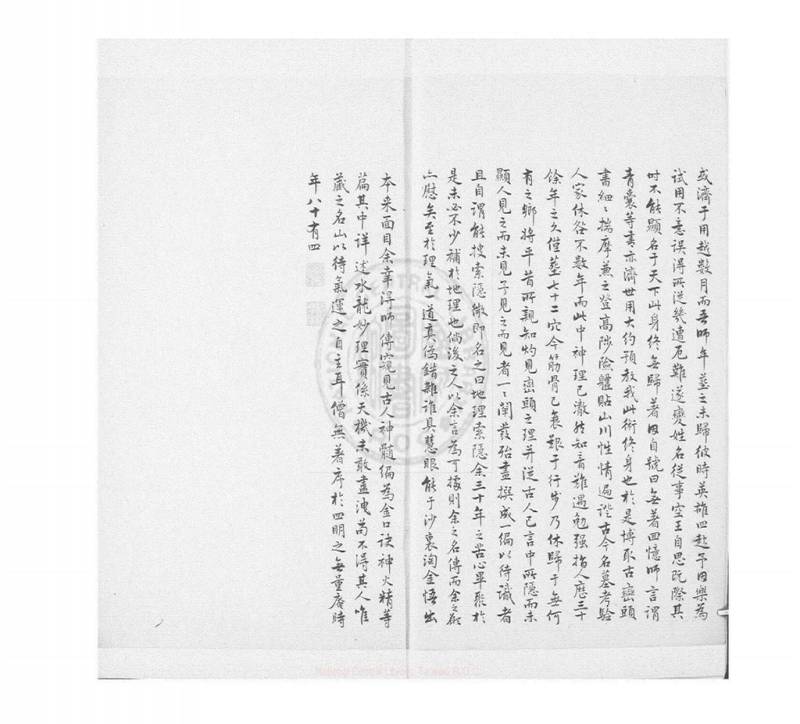 或濟于用越數月而吾師年墓之未歸彼時英雄四起予因樂為
試用不意誤得所從幾遭厄難遂變姓名從事空王自思既際其
时不能顯名于天下此身終無歸著因自號曰無著回憶師言謂
青囊等書亦濟世用大約預放我此術終身也於是博取古巒頭
書細〻揣摩兼之登高陟險體貼山川性情遍證古今名墓考驗
人家休咎不數年而此中神理已澈然知音難遇勉强指人歷三十
餘年之久僅墓七十二穴今筋骨已衰艱于行步乃休歸于無何
有之鄉將平昔所親知灼見巒頭之理并從古人已言中所隱而未
顯人見之而未見予見之而見者一〻闡發殆盡撰成一編以待識者
且自謂能搜索隱微即名之曰地理索隱余三十年之苦心畢聚於
是未必不少補於地理也倘後之人以余言為可據則余之名傳而余之願
亦慰矣至於理氣一道真偽錯雜誰具慧眼能于沙裏淘金悟出
本来面目余幸得師傳窺見古人神髓编為金口诀神火精等
篇其中详述水龍妙理實係天機未敢盡洩苟不得其人唯
藏之名山以待氣運之自主耳僧無著序於四明之無量庵時
年八十有四